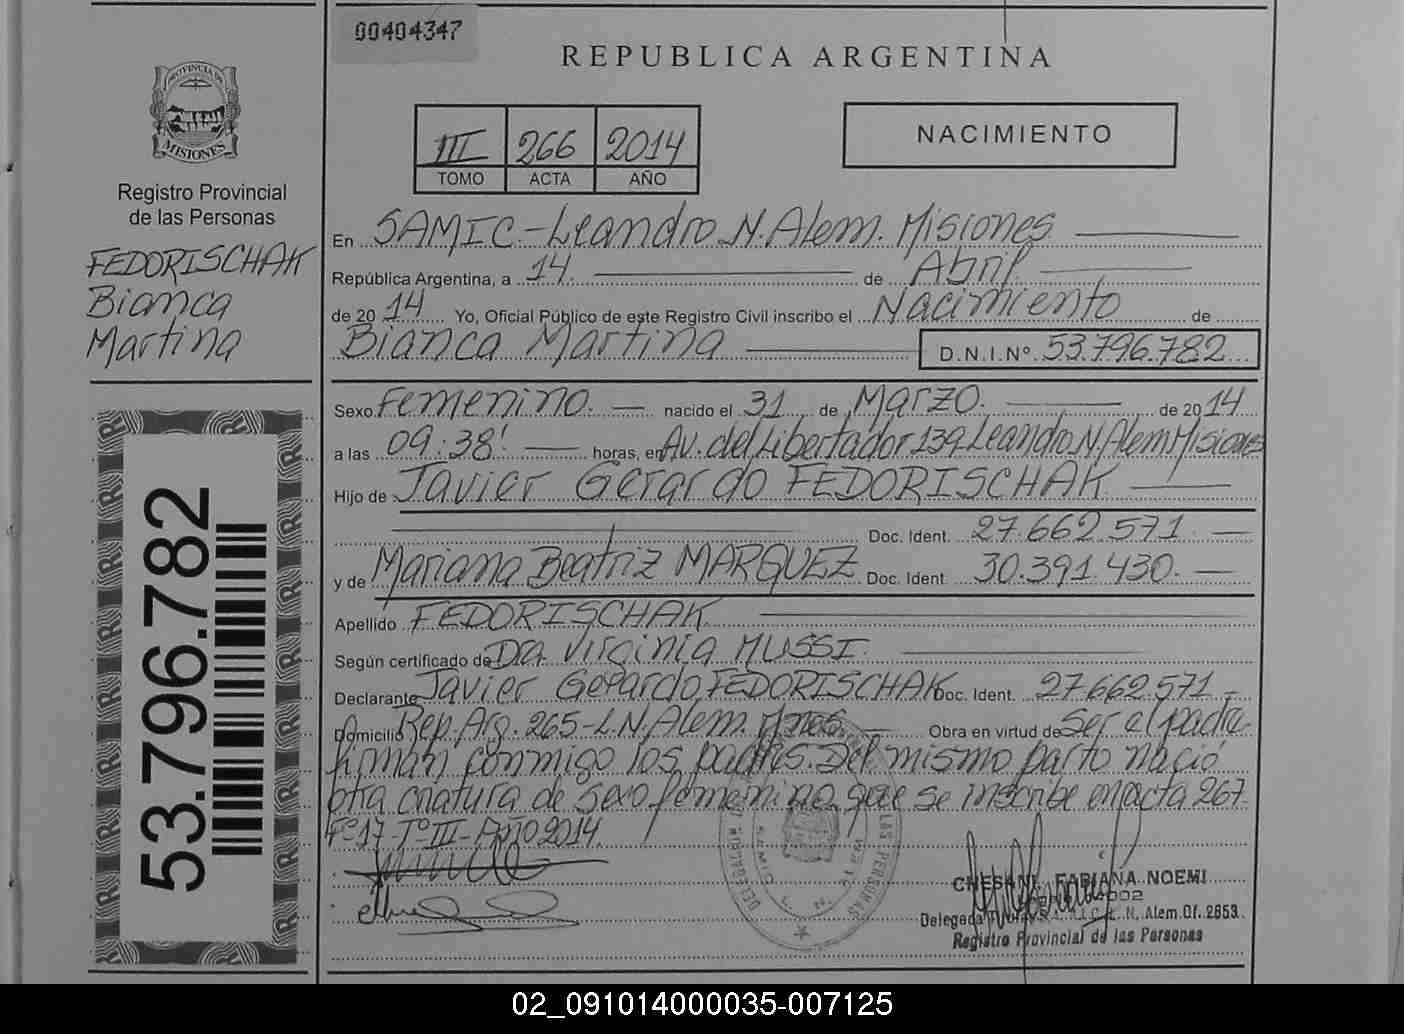 00404347
REPUBLICA ARGENTINA
PROVINCIA DE
MISIONES
Registro Provincial
de las Personas
FEDORISCHAK
Bianca
Martina
53.796.782
III 266 2014
TOMO ACTA AÑO
NACIMIENTO
En SAMIC.-Leandro N. Alem. Misiones
República Argentina, a 14. de Abril.
de 2014 Yo, Oficial Público de este Registro Civil inscribo el Nacimiento de
Bianca Martina D.N.I.Nº 53.796.782
Sexo Femenino. nacido el 31 de Marzo. de 2014
a las 09:38' horas, en Av. del Libertador 139 Leandro N Alem Misiones
Hijo de Javier Gerardo FEDORISCHAK
Doc. Ident. 27.662.571.
y de Mariana Beatriz MARQUEZ Doc. Ident. 30.391.430.
Apellido FEDORISCHAK
Según certificado de Dra. Virginia MUSSI.
Declarante Javier Gerardo FEDORISCHAK Doc. Ident. 27.662.571
Domicilio Rep. Arg. 265-L.N. Alem. Mnes. Obra en virtud de ser el padre
firman conmigo los padres. Del mismo parto nació
otra criatura de sexo femenino que se inscribe en acta 267-
Fº17-TºIII-AÑO 2014.
CHESANI FABIANA NOEMI
Delegada L. N. Alem. Of. 2653
Registro Provincial de las Personas
02_091014000035-007125